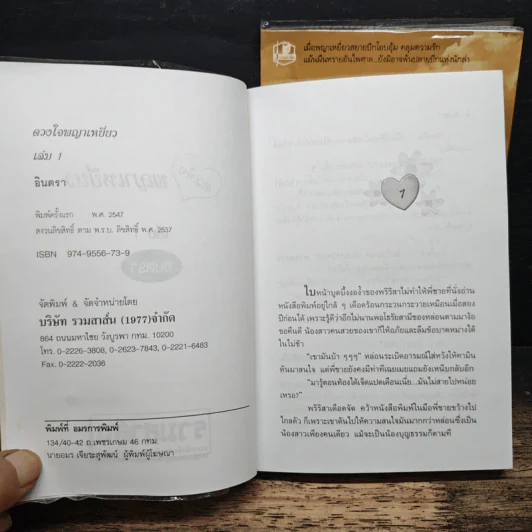 เมื่อพญาเหยี่ยวสยายปีกโอบอุ้ม คลุมความรัก
แม้นผืนทรายอันไพศาล...ยังมิอาจพ้นปลายปีกแห่งนักล่า
ดวงใจพญาเหยี่ยว
เล่ม 1
อินตรา
พิมพ์ครั้งแรก พ.ศ. 2547
สงวนลิขสิทธิ์ ตาม พ.ร.บ. ลิขสิทธิ์ พ.ศ. 2537
ISBN 974-9556-73-9
จัดพิมพ์ & จัดจำหน่ายโดย
บริษัท รวมสาส์น (1977)จำกัด
864 ถนนมหาไชย วังบูรพา กทม. 10200
โทร. 0-2226-3808, 0-2623-7843, 0-2221-6483
Fax. 0-2222-2036
พิมพ์ที่ อมรการพิมพ์
134/40-42 ถ.เพชรเกษม 46 กทม.
นายอมร เจียระสุพัฒน์ ผู้พิมพ์ผู้โฆษณา
1
ใบหน้าบูดบึ้งงอง้ำของพริริสาไม่ทำให้พี่ชายที่นั่งอ่าน
หนังสือพิมพ์อยู่ใกล้ ๆ เดือดร้อนกระวนกระวายเหมือนเมื่อสอง
ปีก่อนได้ เพราะรู้ดีว่าอีกไม่นานพอโธริยาสามีของหล่อนตามมาง้อ
ขอคืนดี น้องสาวคนสวยของเขาก็ให้อภัยและลืมข้อบาดหมางได้
ในไม่ช้า
"เขามันบ้า ๆๆๆ" หล่อนระเบิดอารมณ์ใส่หวังให้คามิน
หันมาสนใจ แต่พี่ชายยังคงมีท่าทีเฉยเมยแถมยังเหน็บกลับอีก
"มารู้ตอนท้องได้เจ็ดแปดเดือนเนี่ย...มันไม่สายไปหน่อย
เหรอ"
พริริสาเดือดจัด คว้าหนังสือพิมพ์ในมือพี่ชายขว้างไป
ไกลตัว ก็เพราะเขาดันไปให้ความสนใจมันมากกว่าหล่อนซึ่งเป็น
น้องสาวเพียงคนเดียว แม้จะเป็นน้องบุญธรรมก็ตามที